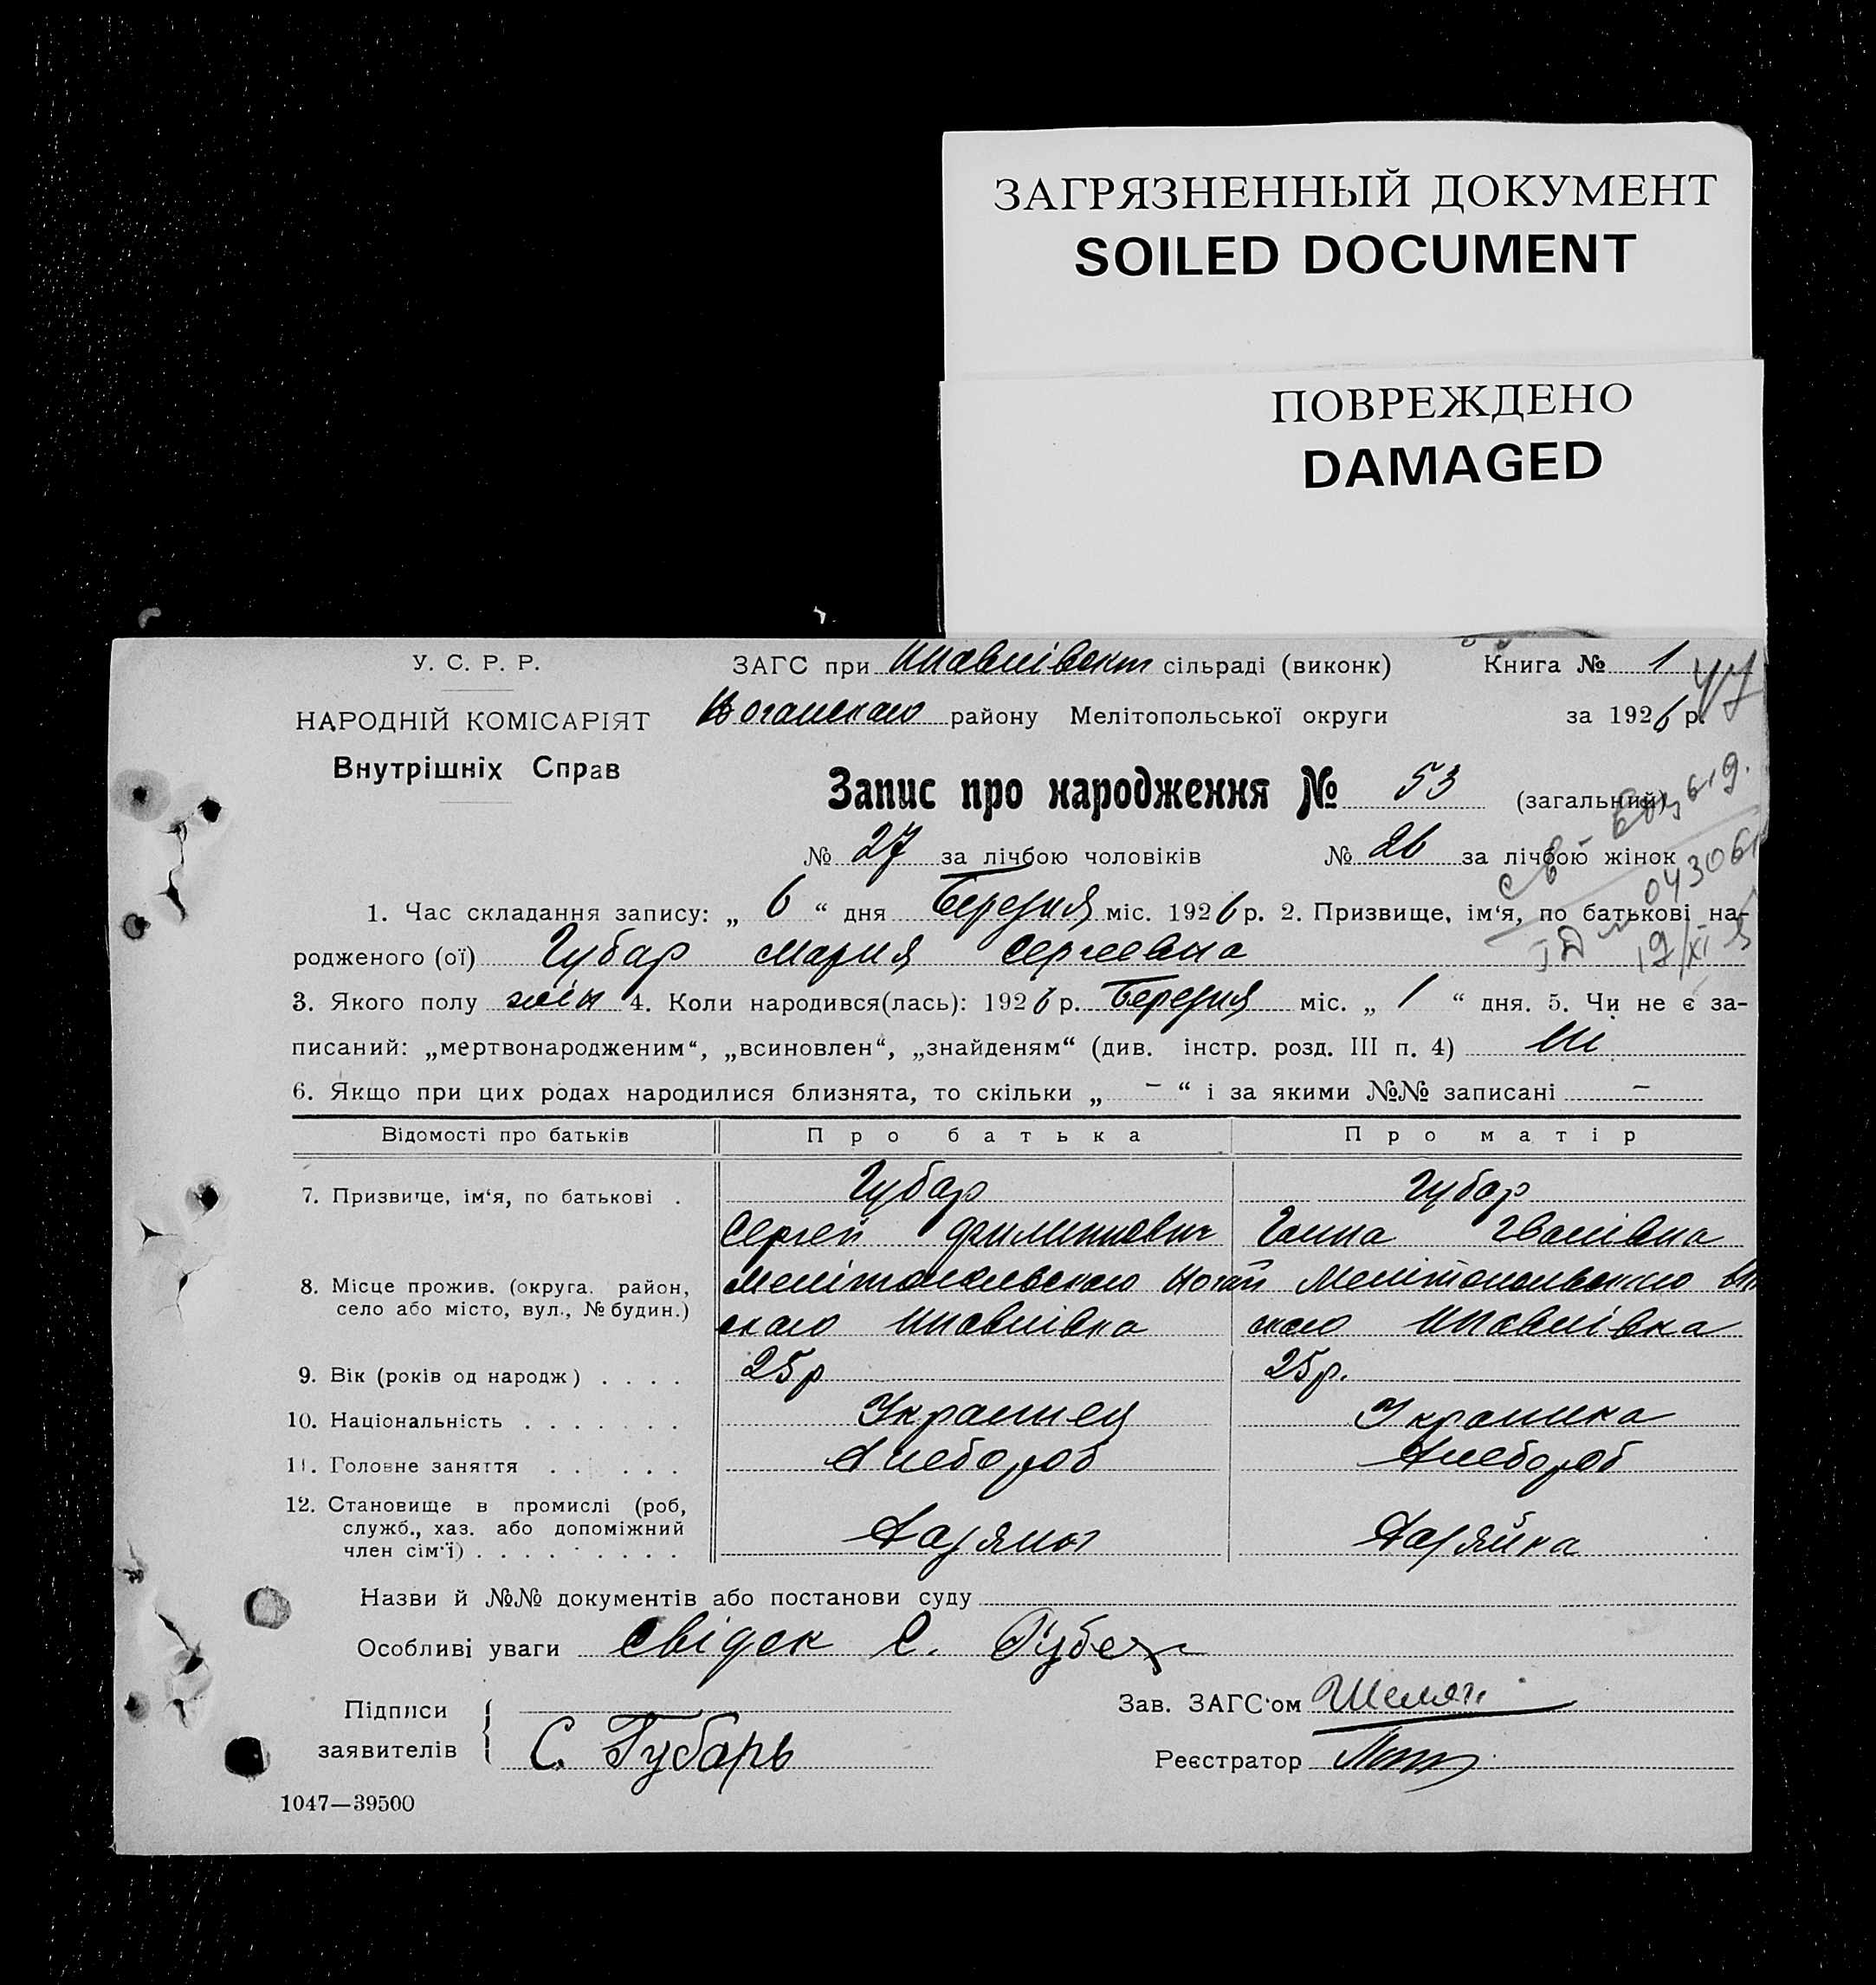 ЗАГРЯЗНЕННЫЙ ДОКУМЕНТ
SOILED DOCUMENT
ПОВРЕЖДЕНО
DAMAGED
У. С. Р. Р.
НАРОДНІЙ КОМІСАРІЯТ
Внутрішніх Справ
ЗАГС при сільраді (виконк)
Книга № 1
47
району Мелітопольської округи
за 1926 р.
Запис про народження № 53 (загальний)
№ 27 за лічбою чоловіків № 26 за лічбою жінок
043061
19/XI
1. Час складання запису: „ 6 “ дня Березня міс. 1926 р. 2. Призвище, ім‘я, по батькові на-
родженого (ої) Губар Мария Сергеевна
3. Якого полу жін 4. Коли народився(лась): 1926 р. Березня міс. „ 1 “ дня. 5. Чи не є за-
писаний: „мертвонародженим“, „всиновлен“, „знайденям“ (див. інстр. розд. III п. 4) Ні
6. Якщо при цих родах народилися близнята, то скільки „ – “ і за якими №№ записані –
Відомості про батьків
Про батька
Про матір
7. Призвище, ім‘я, по батькові .
Губар
Сергей
Губар
Ганна Іванівна
8. Місце прожив. (округа. район,
село або місто, вул., № будин.)
9. Вік (років од народж) . . . .
25р
25р.
10. Національність . . . . . . .
Украинец
Украинка
11. Головне заняття . . . . . .
Хлебороб
Хлебороб
12. Становище в промислі (роб,
служб., хаз. або допоміжний
член сім‘ї) . . . . . . . . .
Хазяйка
Назви й №№ документів або постанови суду
Особливі уваги Свідок С.
Підписи
заявителів
С. Губарь
Зав. ЗАГС‘ом
Реєстратор
1047—39500